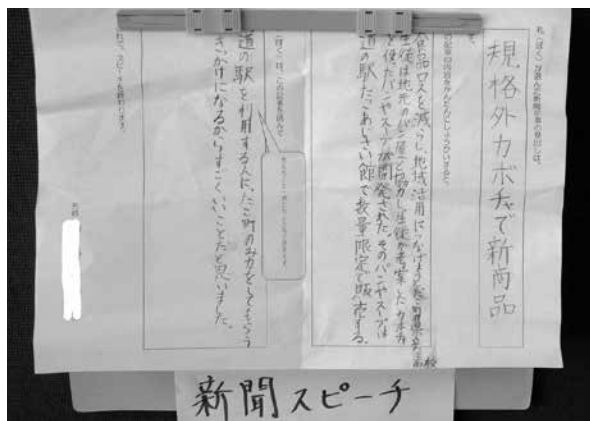 私(ぼく)が選んだ新聞記事の見出しは、
規格外カボチャで新商品
です。
この記事の内容をかんたんにしょうかいすると、
食品ロスを減らし、地域活用につなげ
生徒は地元のパン屋と協力し生徒が考案したカボチャ
を使たパンやスープが開発された。そのパンやスープは
道の駅たっこあじさい館で数量限定で販売する。
ぼくは、この記事を読んで
道の駅を利用する人に、たこ町のみ力をしてもらう
きっかけになるからすごくいいことだと思いました。
これで、スピーチを終わります。
新聞スピーチ